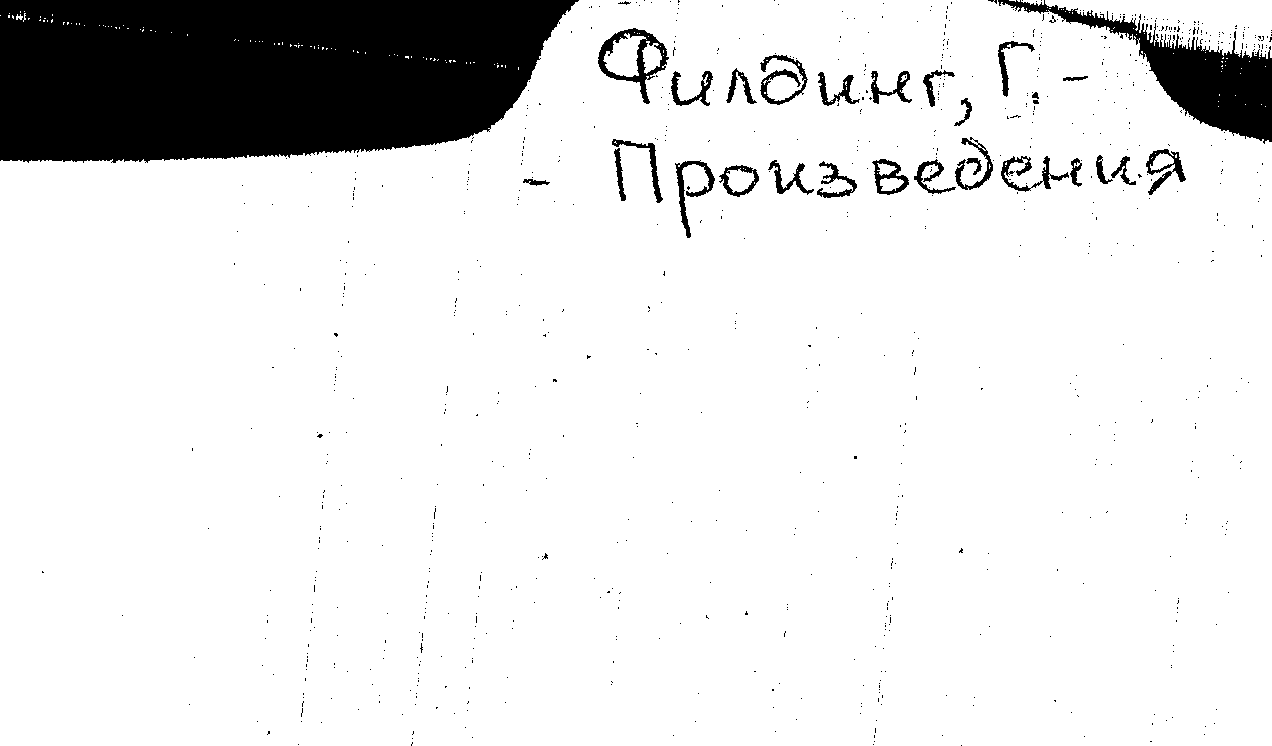 Филдинг, Г. -
- Произведения